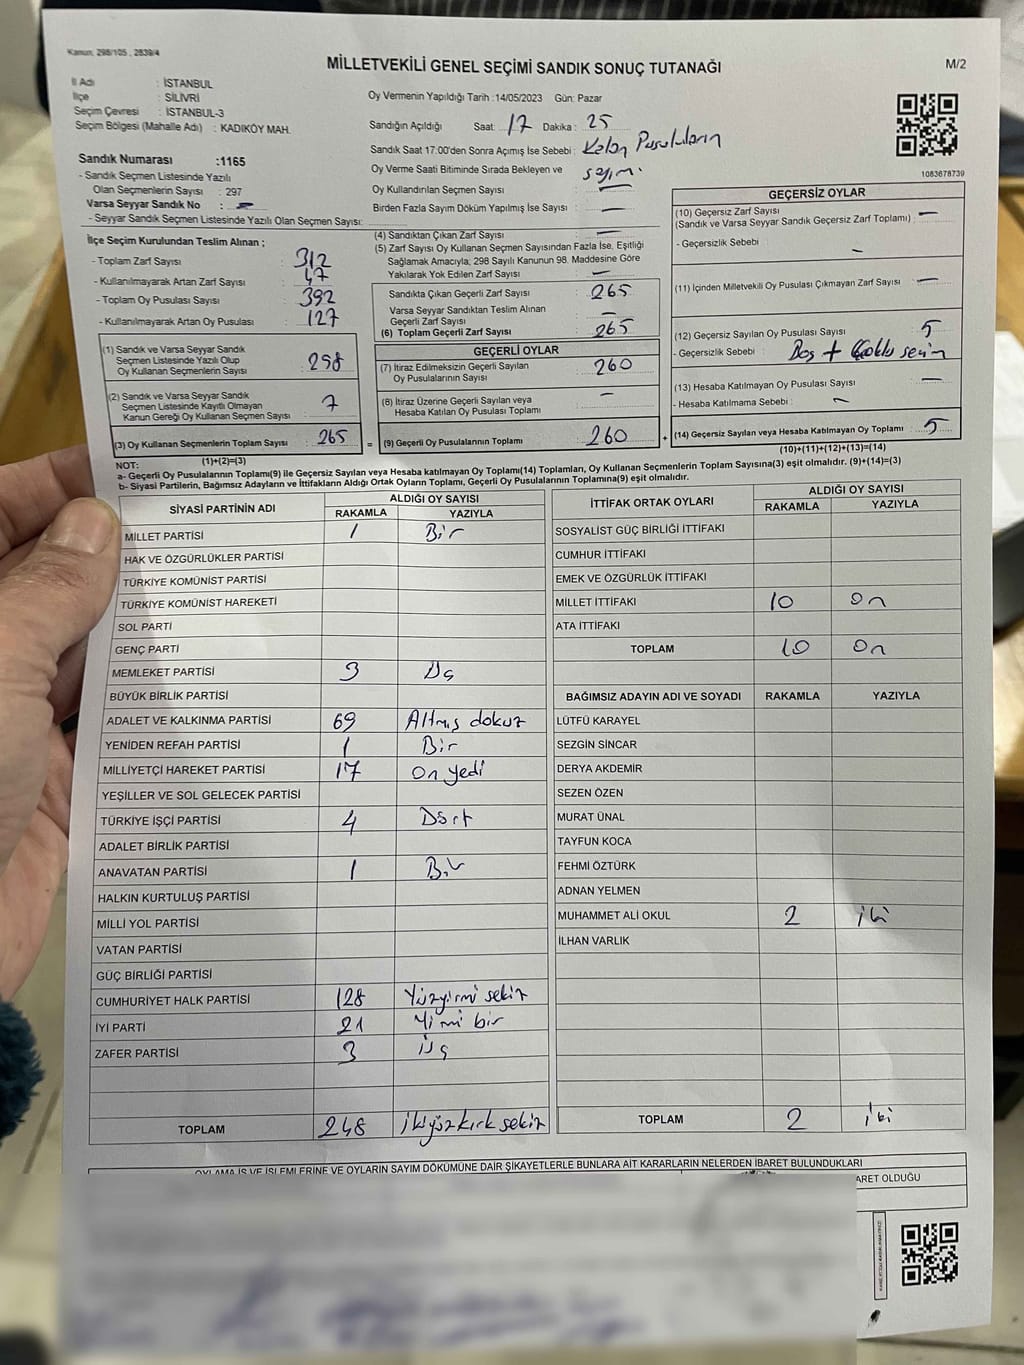 Kanun, 298/105 , 2839/4
MİLLETVEKİLİ GENEL SEÇİMİ SANDIK SONUÇ TUTANAĞI
M/2
İl Adı : İSTANBUL
İlçe : SİLİVRİ
Seçim Çevresi : İSTANBUL-3
Seçim Bölgesi (Mahalle Adı) : KADIKÖY MAH.
Sandık Numarası :1165
- Sandık Seçmen Listesinde Yazılı
Olan Seçmenlerin Sayısı : 297
Varsa Seyyar Sandık No : —
- Seyyar Sandık Seçmen Listesinde Yazılı Olan Seçmen Sayısı:
Oy Vermenin Yapıldığı Tarih :14/05/2023 Gün: Pazar
Sandığın Açıldığı Saat: 17 Dakika : 25
Sandık Saat 17:00'den Sonra Açımış İse Sebebi : Kalan Pusulaların
Oy Verme Saati Bitiminde Sırada Bekleyen ve sayım.
Oy Kullandırılan Seçmen Sayısı : —
Birden Fazla Sayım Döküm Yapılmış İse Sayısı : —
1083678739
İlçe Seçim Kurulundan Teslim Alınan ;
- Toplam Zarf Sayısı : 312
- Kullanılmayarak Artan Zarf Sayısı : 47
- Toplam Oy Pusulası Sayısı : 392
- Kullanılmayarak Artan Oy Pusulası : 127
(1) Sandık ve Varsa Seyyar Sandık
Seçmen Listesinde Yazılı Olup
Oy Kullanan Seçmenlerin Sayısı : 258
(2) Sandık ve Varsa Seyyar Sandık
Seçmen Listesinde Kayıtlı Olmayan
Kanun Gereği Oy Kullanan Seçmen Sayısı : 7
(3) Oy Kullanan Seçmenlerin Toplam Sayısı : 265
(1)+(2)=(3)
(4) Sandıktan Çıkan Zarf Sayısı : —
(5) Zarf Sayısı Oy Kullanan Seçmen Sayısından Fazla İse, Eşitliği
Sağlamak Amacıyla; 298 Sayılı Kanunun 98. Maddesine Göre
Yakılarak Yok Edilen Zarf Sayısı : —
Sandıkta Çıkan Geçerli Zarf Sayısı : 265
Varsa Seyyar Sandıktan Teslim Alınan
Geçerli Zarf Sayısı : —
(6) Toplam Geçerli Zarf Sayısı : 265
GEÇERLİ OYLAR
(7) İtiraz Edilmeksizin Geçerli Sayılan
Oy Pusulalarının Sayısı : 260
(8) İtiraz Üzerine Geçerli Sayılan veya
Hesaba Katılan Oy Pusulası Toplamı : —
= (9) Geçerli Oy Pusulalarının Toplamı : 260
GEÇERSİZ OYLAR
(10) Geçersiz Zarf Sayısı
(Sandık ve Varsa Seyyar Sandık Geçersiz Zarf Toplamı) : —
- Geçersizlik Sebebi : —
(11) İçinden Milletvekili Oy Pusulası Çıkmayan Zarf Sayısı : —
(12) Geçersiz Sayılan Oy Pusulası Sayısı : 5
- Geçersizlik Sebebi : Boş + Çoklu seçim
(13) Hesaba Katılmayan Oy Pusulası Sayısı : —
- Hesaba Katılmama Sebebi : —
+ (14) Geçersiz Sayılan veya Hesaba Katılmayan Oy Toplamı : 5
(10)+(11)+(12)+(13)=(14)
NOT:
a- Geçerli Oy Pusulalarının Toplamı(9) ile Geçersiz Sayılan veya Hesaba katılmayan Oy Toplamı(14) Toplamları, Oy Kullanan Seçmenlerin Toplam Sayısına(3) eşit olmalıdır. (9)+(14)=(3)
b- Siyasi Partilerin, Bağımsız Adayların ve İttifakların Aldığı Ortak Oyların Toplamı, Geçerli Oy Pusulalarının Toplamına(9) eşit olmalıdır.
SİYASİ PARTİNİN ADI ALDIĞI OY SAYISI
RAKAMLA YAZIYLA
MİLLET PARTİSİ 1 Bir
HAK VE ÖZGÜRLÜKLER PARTİSİ
TÜRKİYE KOMÜNİST PARTİSİ
TÜRKİYE KOMÜNİST HAREKETİ
SOL PARTİ
GENÇ PARTİ
MEMLEKET PARTİSİ 3 Üç
BÜYÜK BİRLİK PARTİSİ
ADALET VE KALKINMA PARTİSİ 69 Altmış dokuz
YENİDEN REFAH PARTİSİ 1 Bir
MİLLİYETÇİ HAREKET PARTİSİ 17 On yedi
YEŞİLLER VE SOL GELECEK PARTİSİ
TÜRKİYE İŞÇİ PARTİSİ 4 Dört
ADALET BİRLİK PARTİSİ
ANAVATAN PARTİSİ 1 Bir
HALKIN KURTULUŞ PARTİSİ
MİLLİ YOL PARTİSİ
VATAN PARTİSİ
GÜÇ BİRLİĞİ PARTİSİ
CUMHURİYET HALK PARTİSİ 128 Yüzyirmi sekiz
İYİ PARTİ 21 Yirmi bir
ZAFER PARTİSİ 3 üç
TOPLAM 248 ikiyüzkırk sekiz
İTTİFAK ORTAK OYLARI ALDIĞI OY SAYISI
RAKAMLA YAZIYLA
SOSYALİST GÜÇ BİRLİĞİ İTTİFAKI
CUMHUR İTTİFAKI
EMEK VE ÖZGÜRLÜK İTTİFAKI
MİLLET İTTİFAKI 10 On
ATA İTTİFAKI
TOPLAM 10 On
BAĞIMSIZ ADAYIN ADI VE SOYADI RAKAMLA YAZIYLA
LÜTFÜ KARAYEL
SEZGİN SİNCAR
DERYA AKDEMİR
SEZEN ÖZEN
MURAT ÜNAL
TAYFUN KOCA
FEHMİ ÖZTÜRK
ADNAN YELMEN
MUHAMMET ALİ OKUL 2 iki
İLHAN VARLIK
TOPLAM 2 iki
OYLAMA İŞ VE İŞLEMLERİNE VE OYLARIN SAYIM DÖKÜMÜNE DAİR ŞİKAYETLERLE BUNLARA AİT KARARLARIN NELERDEN İBARET BULUNDUKLARI
ARET OLDUĞU